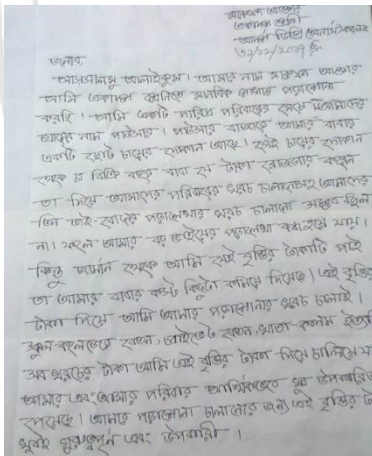 একাদশ শ্রেণী
জনাব,
আসসালামু আলাইকুম। আমার নাম আক্তার
আমি একাদশ শ্রেণিতে মানবিক শাখায় পড়াশোনা
করছি। আমি একটি দরিদ্র পরিবারের মেয়ে। আমাদের
গ্রামের নাম । বাজারে আমার বাবার
একটি ছোট চায়ের দোকান আছে। এই চায়ের দোকান
থেকে যা বিক্রি করে বাবা যে টাকা রোজগার করেন
তা দিয়ে আমাদের পরিবারের খরচ চালানোসহ আমাদের
তিন ভাই-বোনের পড়ালেখার খরচ চালানো সম্ভব ছিল
না। ফলে আমার বড় ভাইয়ের পড়ালেখা বন্ধ হয়ে যায়।
কিন্তু থেকে আমি যেই বৃত্তির টাকাটি পাই
তা আমার বাবার কষ্ট কিছুটা কমিয়ে দিয়েছে। এই বৃত্তির
টাকা দিয়ে আমি আমার পড়াশোনার খরচ চালাই।
স্কুল কলেজের বেতন, প্রাইভেট বেতন, খাতা কলম ইত্যাদি
সব খরচের টাকা আমি এই বৃত্তির টাকা দিয়ে চালিয়ে
আমার এবং আমার পরিবার আর্থিকভাবে খুব উপকারিত
হয়েছে। আমার পড়াশোনা চালানোর জন্য এই বৃত্তির
খুবই গুরুত্বপূর্ণ এবং উপকারী।